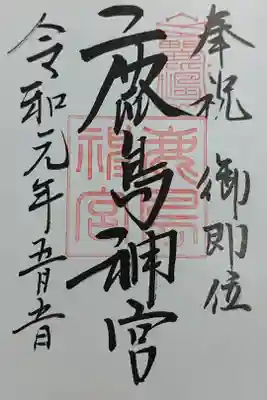 奉祝 御即位
鹿島神宮
鹿島神宮
令和元年五月